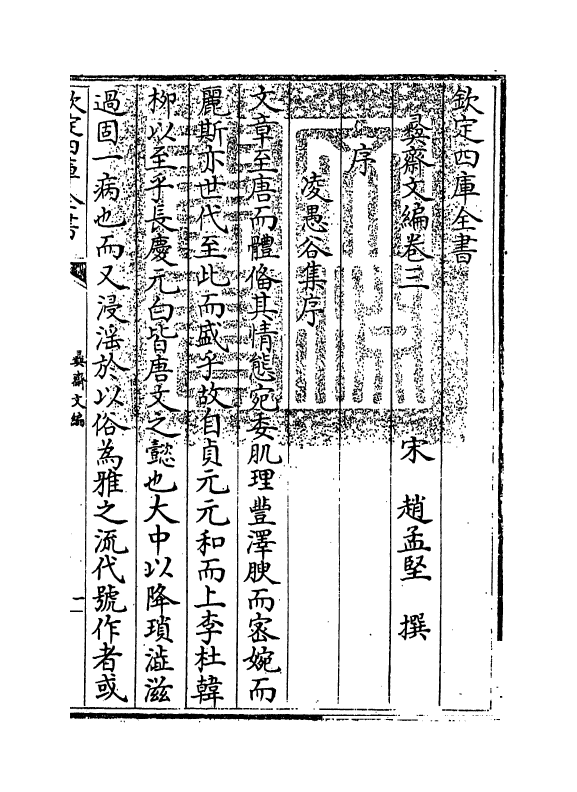 欽定四庫全書
彛齋文編卷三
宋 趙孟堅 撰
序
凌愚谷集序
文章至唐而體偹其情態宛委肌理豐澤腴而宻婉而
麗斯亦世代至此而盛乎故自貞元元和而上李杜韓
柳以至乎長慶元白皆唐文之懿也大中以降瑣澁滋
過固一病也而又浸滛於以俗為雅之流代號作者或
欽定四庫全書
彛齋文編
一